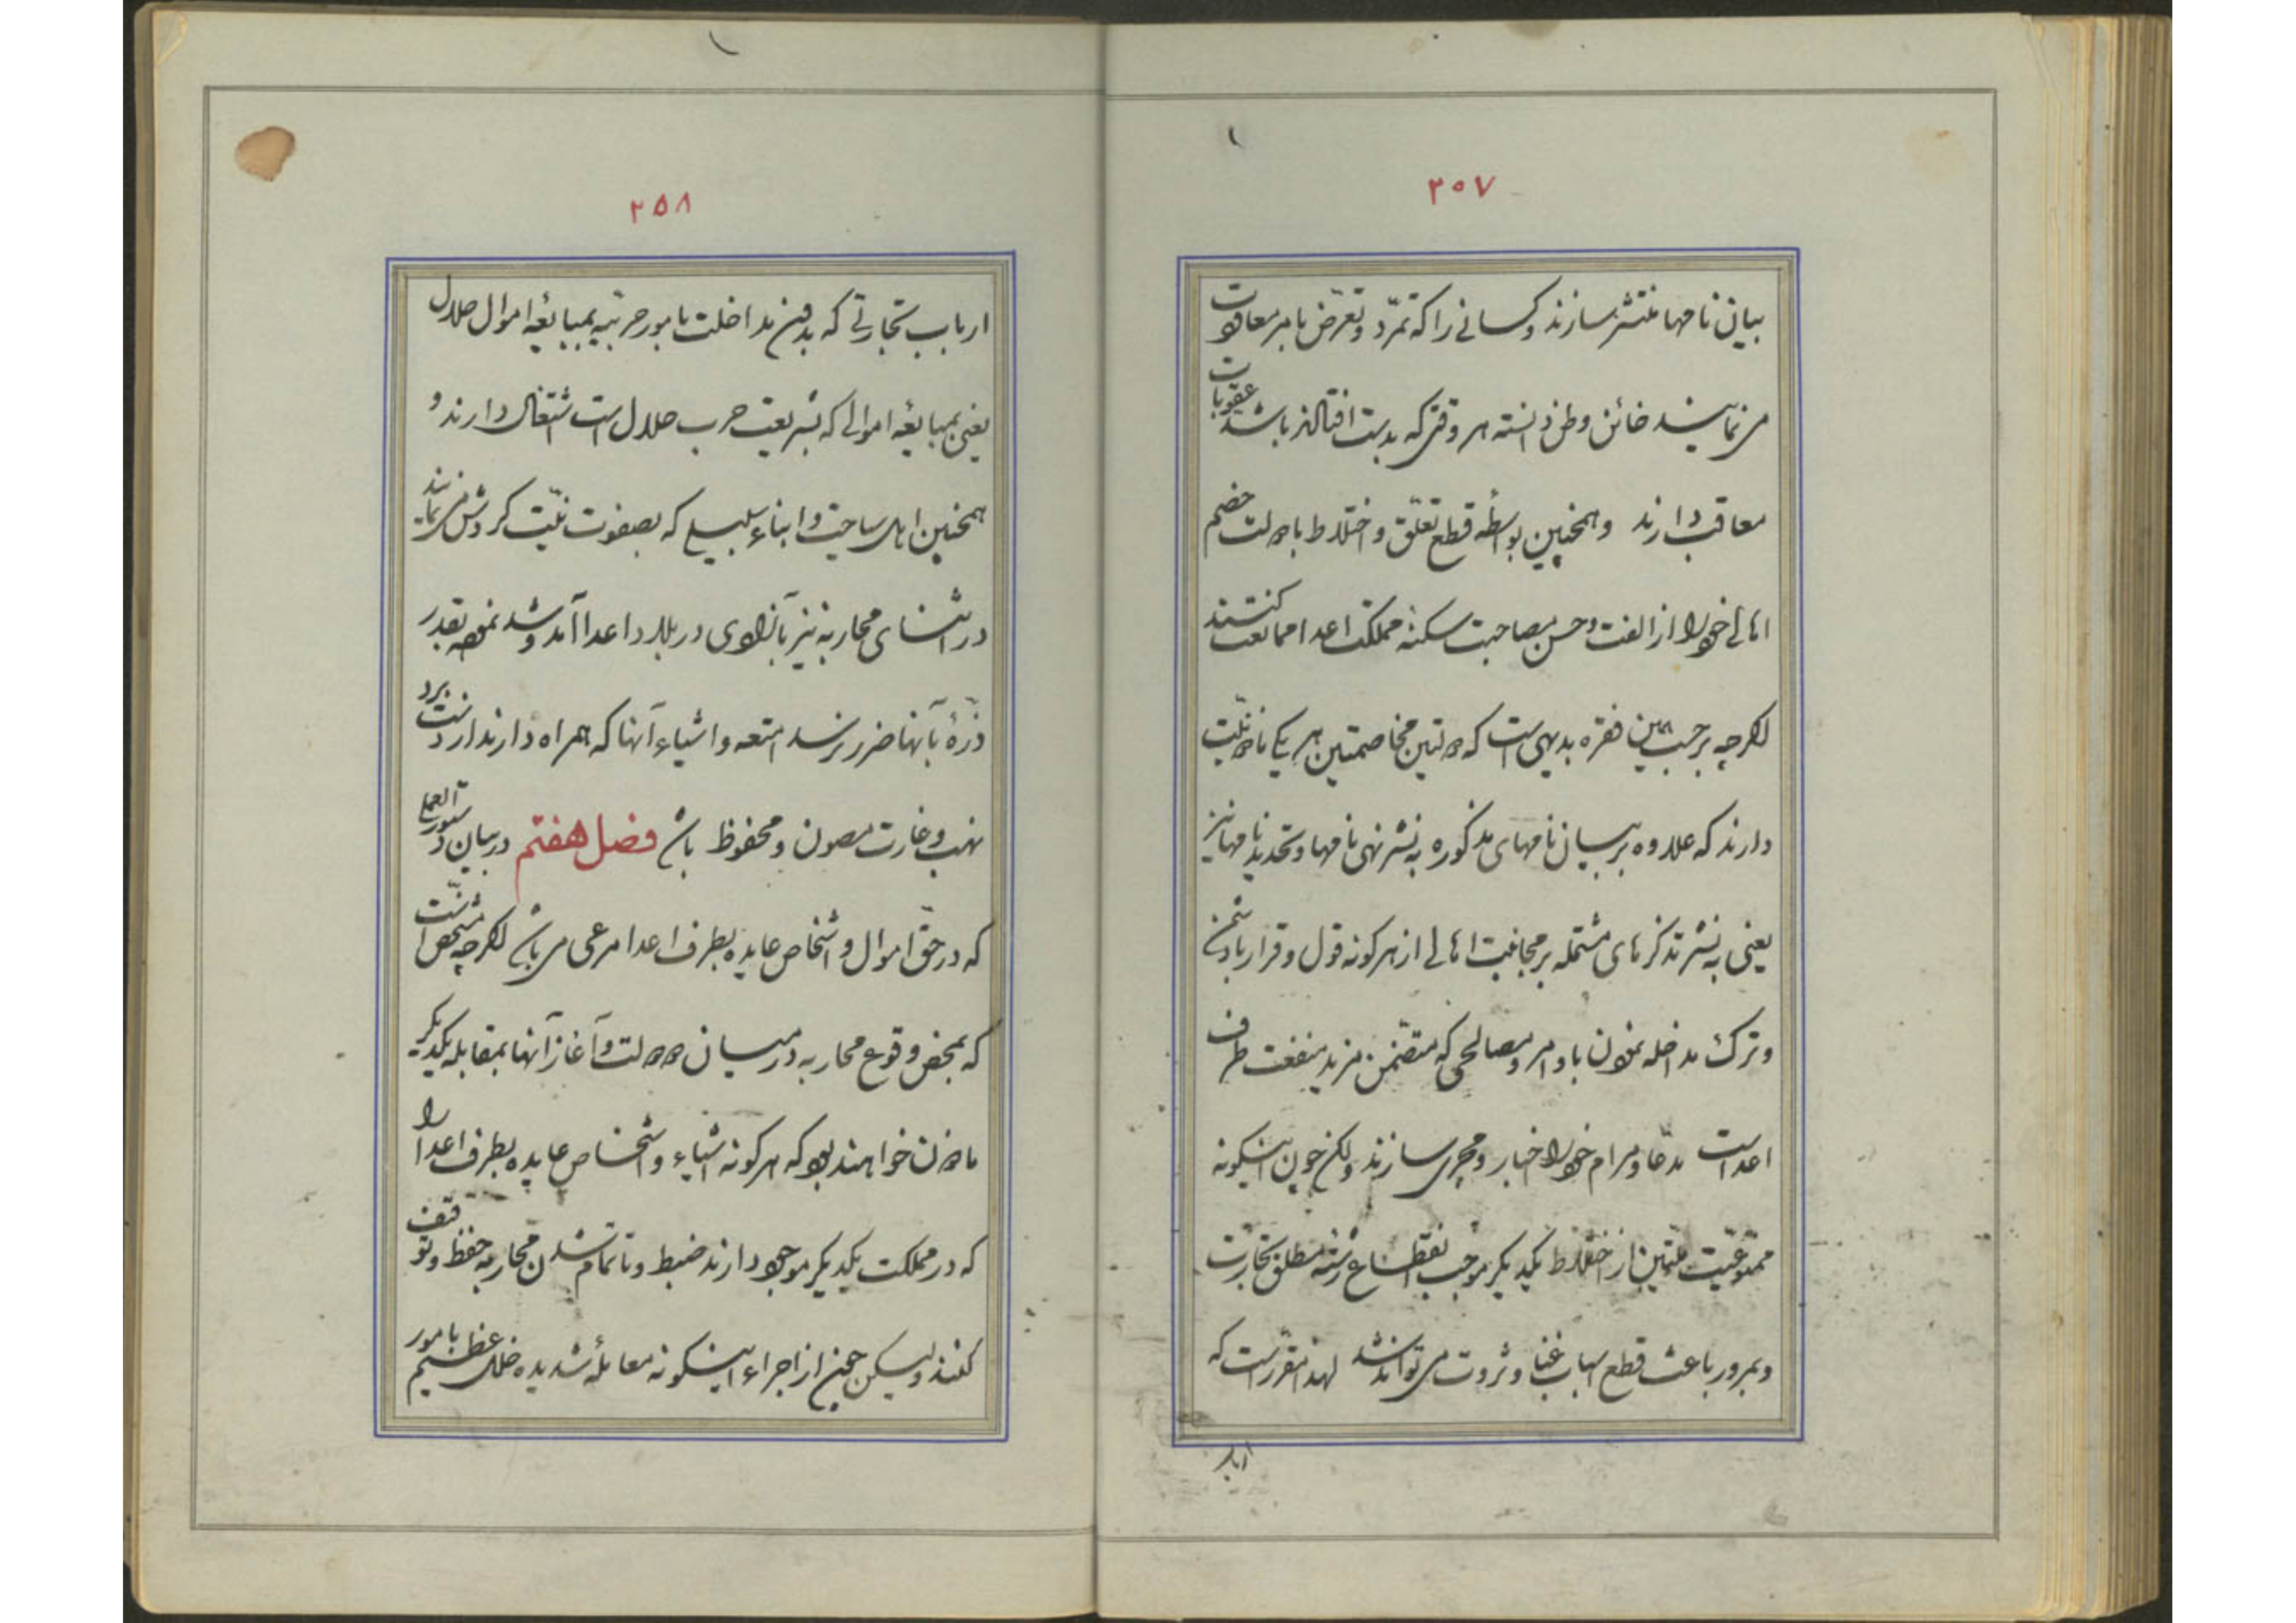 ۲۵۷
بیان نامها منتشر سازند و کسانی را که تمرّد و تعرّض بامر معاودت
می نمایند خائن وطن دانسته هر وقتی که بدست افتادند باشد عقوبات
معاقب دارند و همچنین بواسطهٔ قطع تعلّق و اختلاط با دولت خصم
اهالی خود را از الفت و حسن مصاحبت سکنهٔ مملکت اعدا ممانعت کنند
اگرچه بر حسب همین فقره بدیهی است که دولتین مخاصمتین هر یکی مأذونیّت
دارند که علاوه بر بیان نامهای مذکوره به نشر نهی نامها و تحدید نامها نیز
یعنی به نشر تذکرهای مشتمله بر مجانبت اهالی از هر گونه قول و قرار با دشمن
و ترک مداخله نمودن باوامر و مصالحی که متضمّن مزید منفعت طرف
اعداست مدّعا و مرام خود را اخبار و مجری سازند ولکن چون اینگونه
ممنوعیّت ملّتین از اختلاط یکدیگر موجب انقطاع رشتهٔ مطلق تجارت
و بمرور باعث قطع اسباب غنا و ثروت می تواند شد لهذا مقرّر است که
ارباب
۲۵۸
ارباب تجارتی که بدون مداخلت بامور حربیّه بمبایعهٔ اموال حلال
یعنی بمبایعهٔ اموالی که بشریعت حرب حلال است اشتغال دارند و
همچنین اهل سیاحت و ابناء سبیل که بصفوت نیّت گردش می نمایند
در اثنای محاربه نیز بآزادی در بلاد اعدا آمد و شد نموده بقدر
ذرّهٔ بآنها ضرر نرسد امتعه و اشیاء آنها که همراه دارند از دست برد
نهب و غارت مصون و محفوظ باشد فصل هفتم در بیان دستور العملی است
که در حقّ اموال و اشخاص عایده بطرف اعدا مرعی می باشد اگرچه مشخّص است
که بمحض وقوع محاربه در میان دو دولت و آغاز آنها بمقابله یکدیگر
مأذون خواهند بود که هر گونه اشیاء و اشخاص عایده بطرف اعدا را
که در مملکت یکدیگر موجود دارند ضبط و تا تمام شدن محاربه حفظ و توقیف
کنند ولیکن چون از اجراء اینگونه معاملهٔ شدیده خللی عظیم بامور